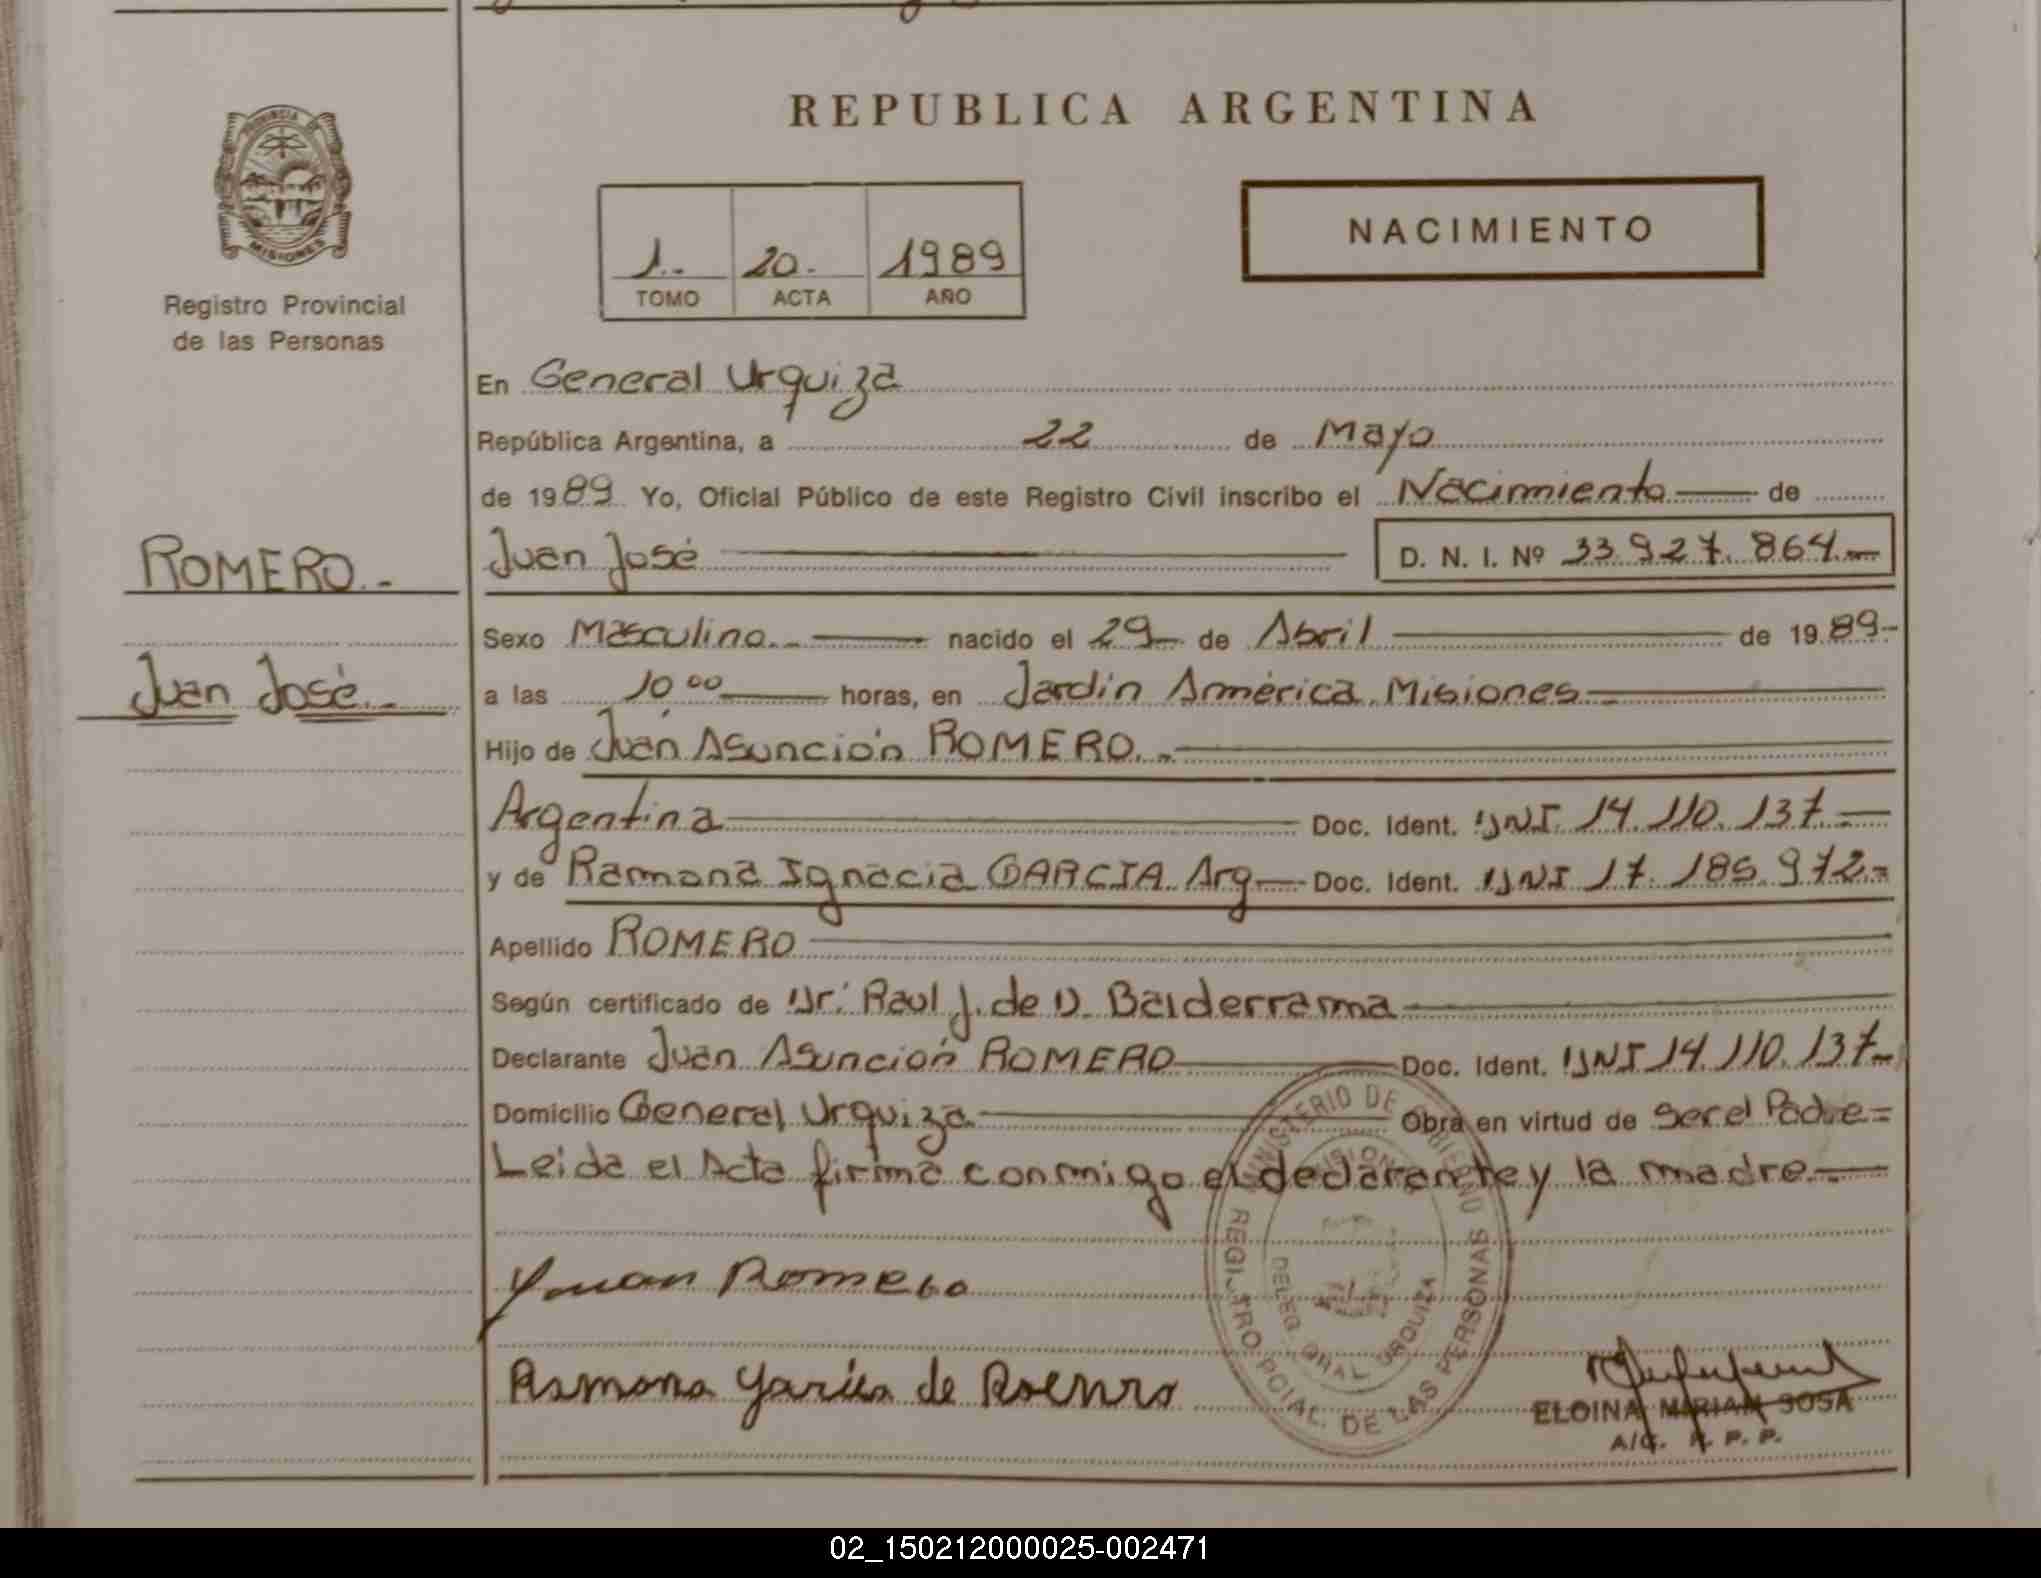 REPUBLICA ARGENTINA
PROVINCIA DE
MISIONES
Registro Provincial
de las Personas
1.- 20.- 1989
TOMO ACTA AÑO
NACIMIENTO
En General Urquiza
República Argentina, a 22 de Mayo
de 1989 Yo, Oficial Público de este Registro Civil inscribo el Nacimiento de
ROMERO.-
Juan José
Juan José D. N. I. Nº 33.927.864.-
Sexo Masculino.- nacido el 29 de Abril de 1989-
a las 10⁰⁰ horas, en Jardín América, Misiones
Hijo de Juan Asunción ROMERO.-
Argentina Doc. Ident. DNI 14.110.137.-
y de Ramona Ignacia GARCIA Arg Doc. Ident. DNI 17.185.972.-
Apellido ROMERO
Según certificado de Dr. Raul J. de D. Balderrama
Declarante Juan Asunción ROMERO Doc. Ident. DNI 14.110.137-
Domicilio General Urquiza Obra en virtud de ser el Padre=
Leida el Acta firma conmigo el declarante y la madre.-
Juan Romero
Ramona Garcia de Romero
MINISTERIO DE GOBIERNO
MISIONES
REGISTRO PCIAL. DE LAS PERSONAS
DELEG. GRAL URQUIZA
ELOINA MIRIAM SOSA
A/C. R. P. P.
02_150212000025-002471